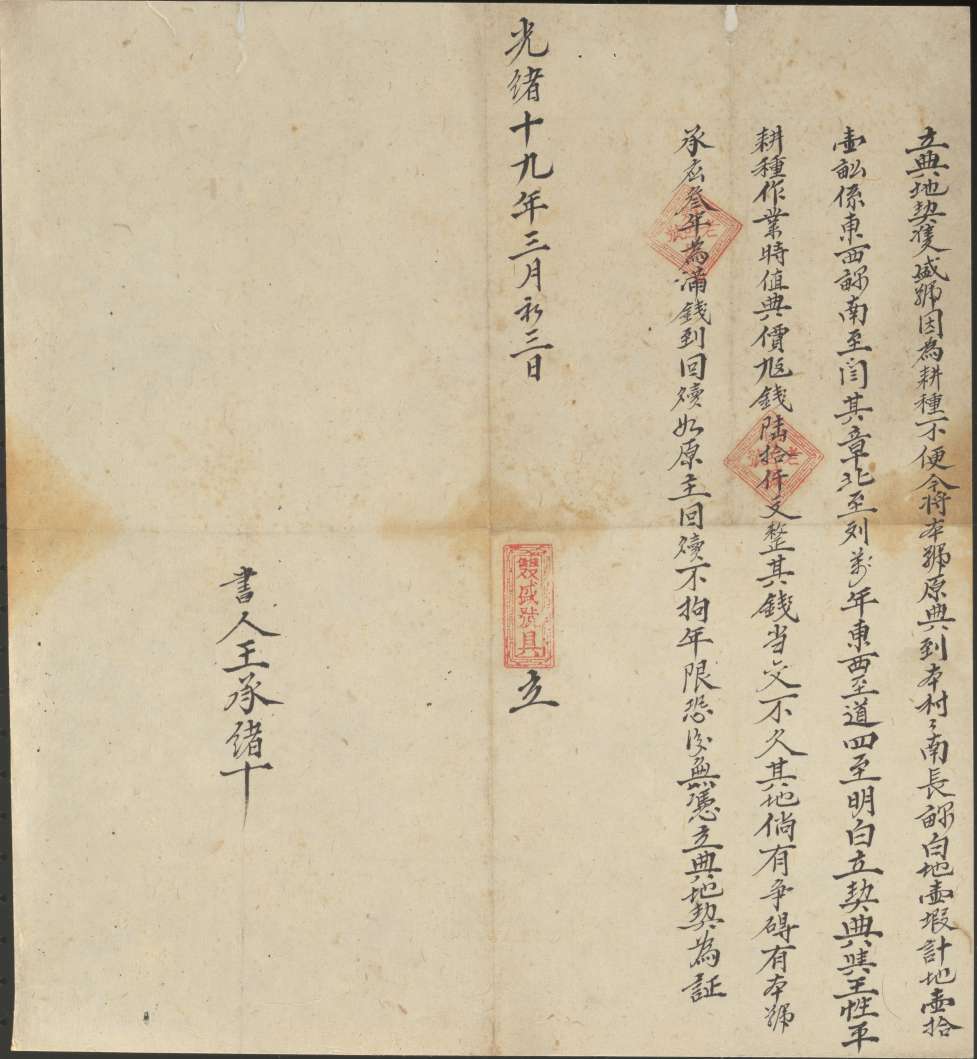 立典地契雙盛號因為耕種不便今将本號原典到本村々南長畛白地壷塅計地壷拾
壷畝係東西畛南至闫其章北至刘萬年東西至道四至明白立契典與王性平
耕種作業時值典價凭錢陆拾仟文整其錢当交不久其地倘有争碍有本號
承应叁年為滿錢到回贖如原主回贖不拘年限恐後無憑立典地契為証
光绪十九年三月初三日
雙盛號具
立
書人王承绪十